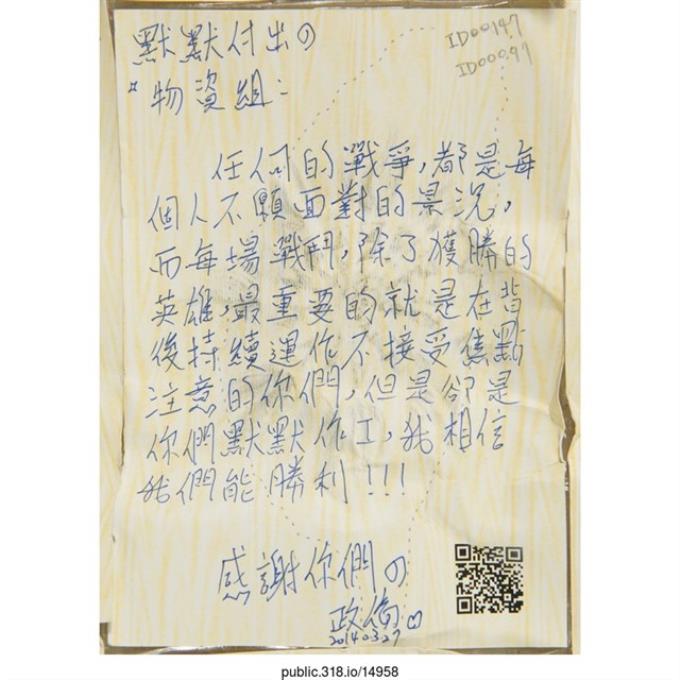 默默付出の
ID00147
ID00097
物資組:
任何的戰爭,都是每
個人不願面對的景況,
而每場戰鬥,除了獲勝的
英雄,最重要的就是在背
後持續運作不接受焦點
注意的你們,但是卻是
你們默默作工,我相信
我們能勝利!!!
感謝你們の
政
2014.03.27
public.318.io/14958